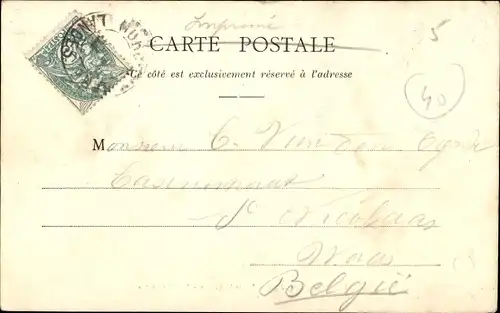 Imprimé
5
CARTE POSTALE
Ce côté est exclusivement réservé à l'adresse
40
Monsieur C.
St Nicolaas
Waas
België